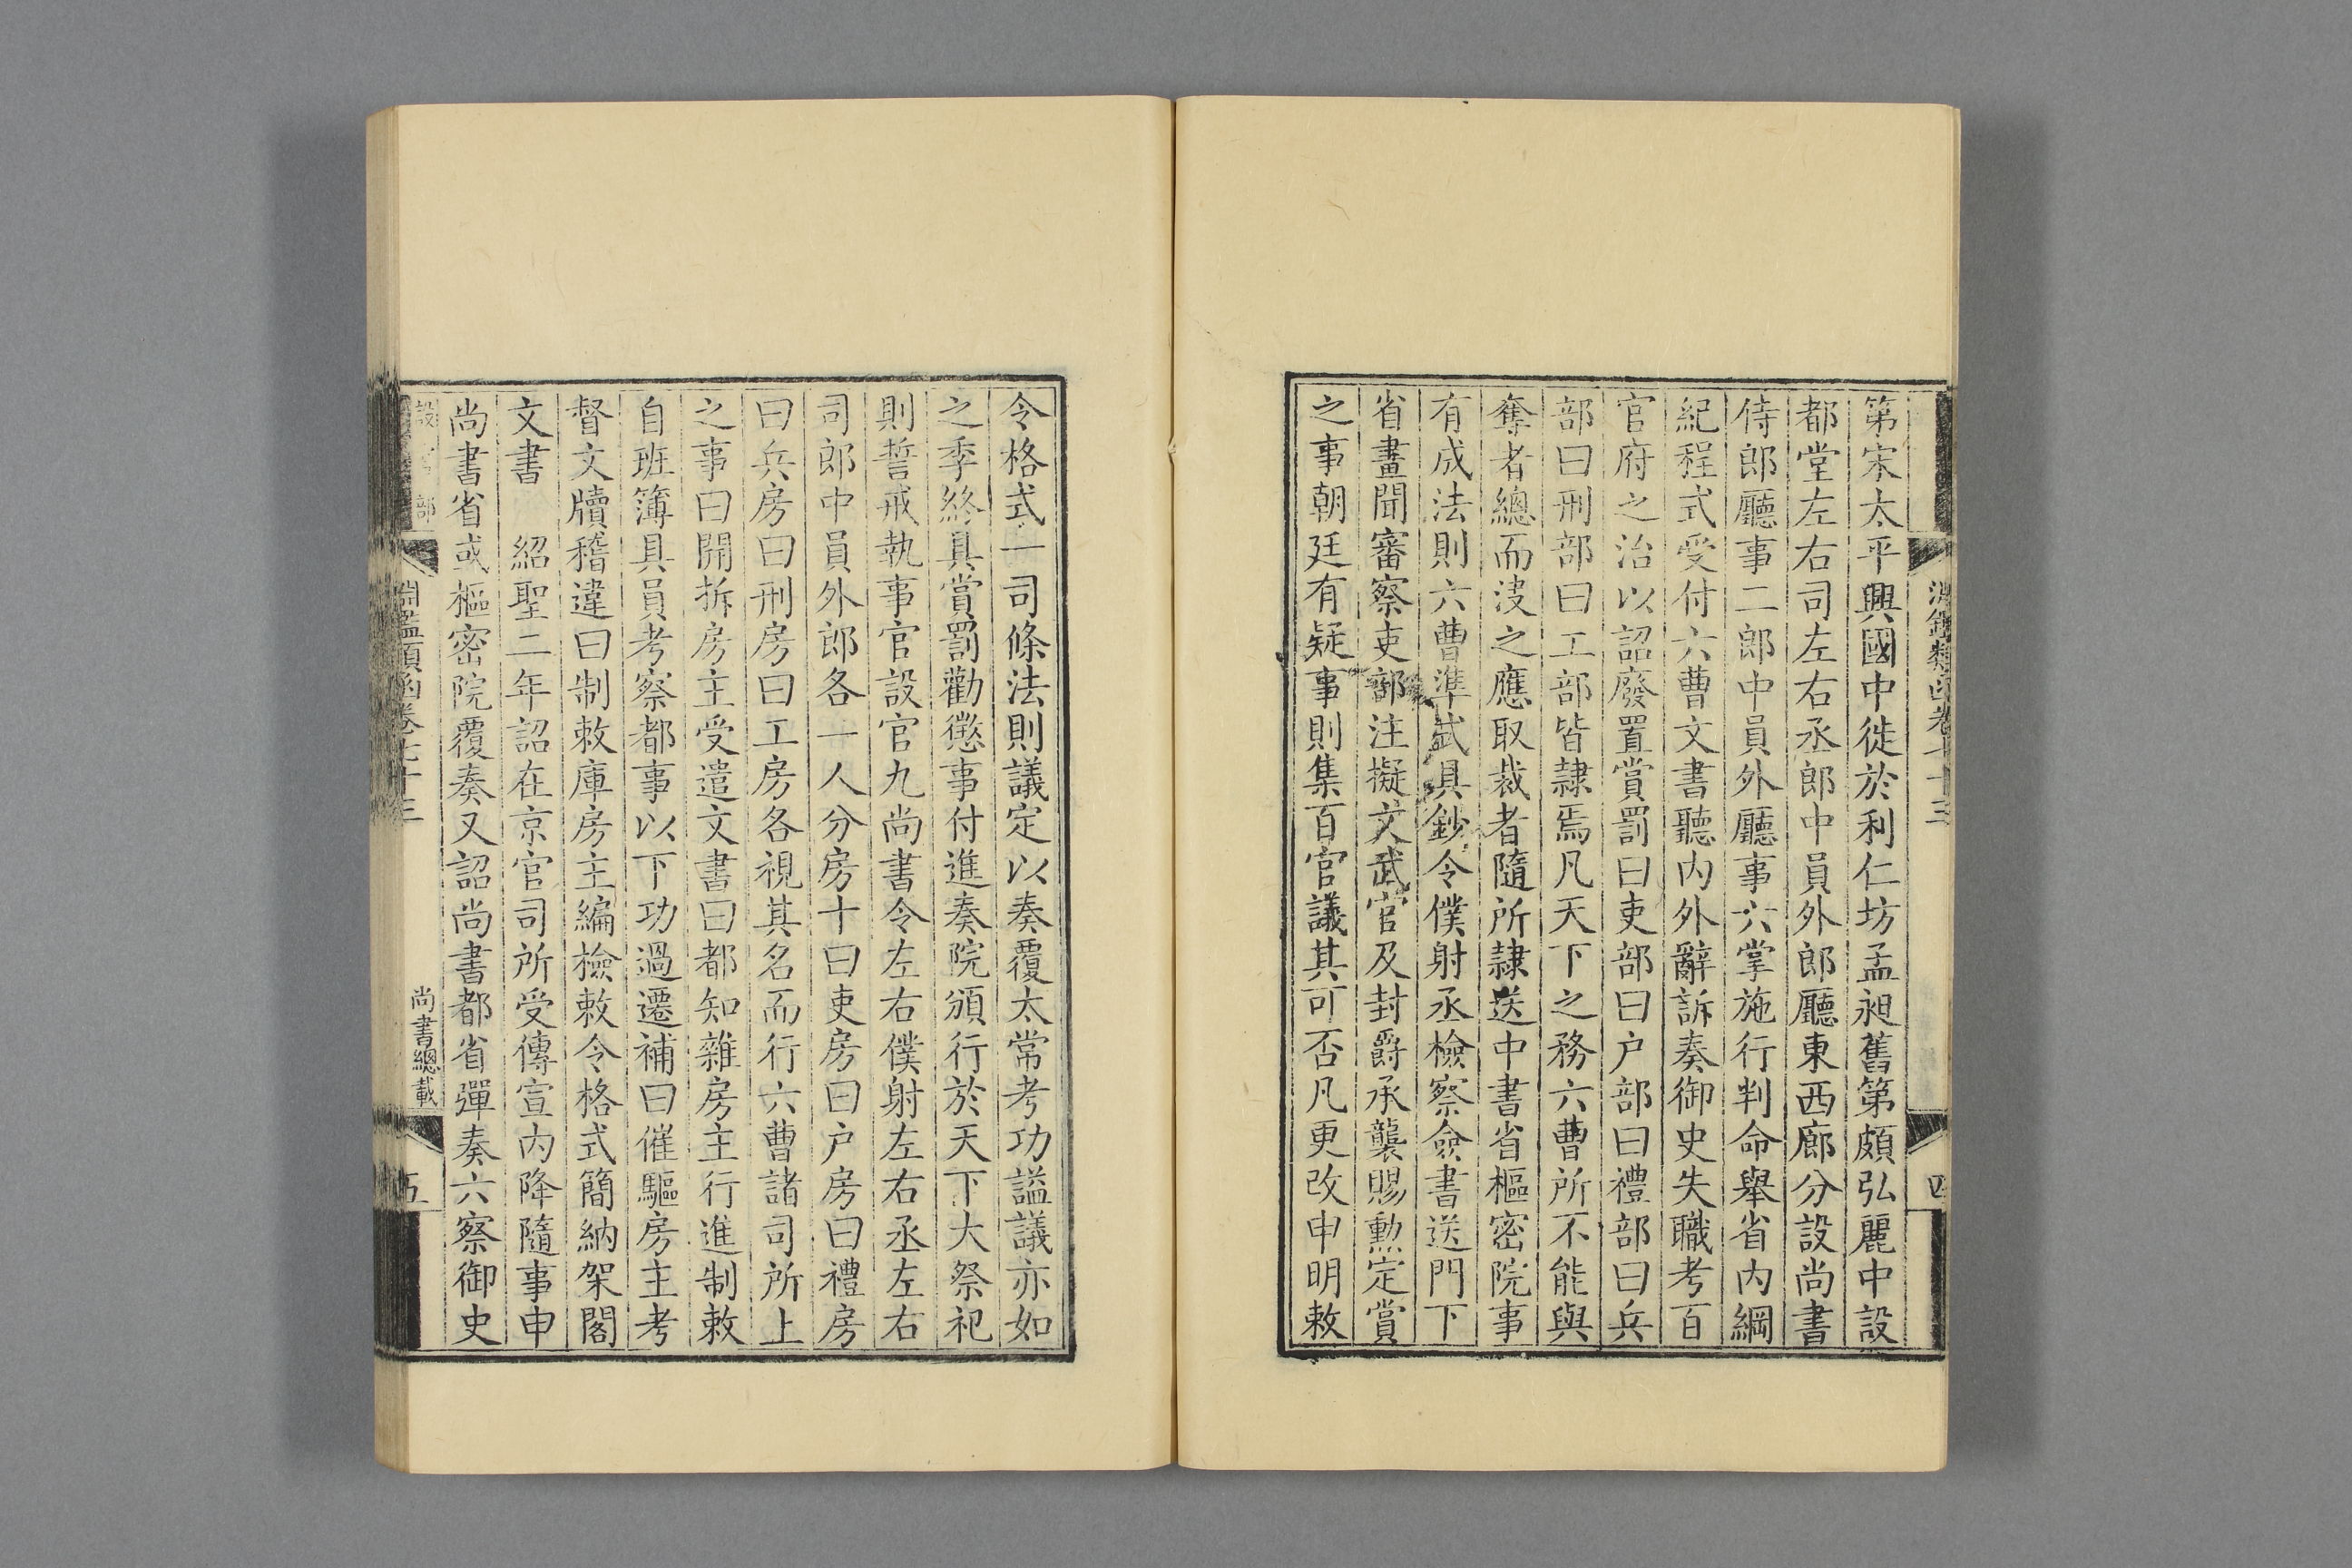 第宋太平興國中徙於利仁坊孟昶舊第頗弘麗中設
都堂左右司左右丞郎中員外郎廳東西廊分設尚書
侍郎廳事二郎中員外廳事六掌施行判命舉省內綱
紀程式受付六曹文書聽內外辭訴奏御史失職考百
官府之治以詔廢置賞罰曰吏部曰户部曰禮部曰兵
部曰刑部曰工部皆隷焉凡天下之務六曹所不能與
奪者總而決之應取裁者隨所隷送中書省樞密院事
有成法則六曹準式具鈔令僕射丞檢察僉書送門下
省畫聞審察吏部注擬文武官及封爵承襲賜勳定賞
之事朝廷有疑事則集百官議其可否凡更改申明敕
令格式一司條法則議定以奏覆太常考功謚議亦如
之季終具賞罰勸懲事付進奏院頒行於天下大祭祀
則誓戒執事官設官九尚書令左右僕射左右丞左右
司郎中員外郎各一人分房十曰吏房曰户房曰禮房
曰兵房曰刑房曰工房各視其名而行六曹諸司所上
之事曰開拆房主受遣文書曰都知雜房主行進制敕
自班簿具員考察都事以下功過遷補曰催驅房主考
督文牘稽違曰制敕庫房主編檢敕令格式簡納架閣
文書　紹聖二年詔在京官司所受傳宣內降隨事申
尚書省或樞密院覆奏又詔尚書都省彈奏六察御史
設官部
淵鑑類函卷七十三
尚書總載
五